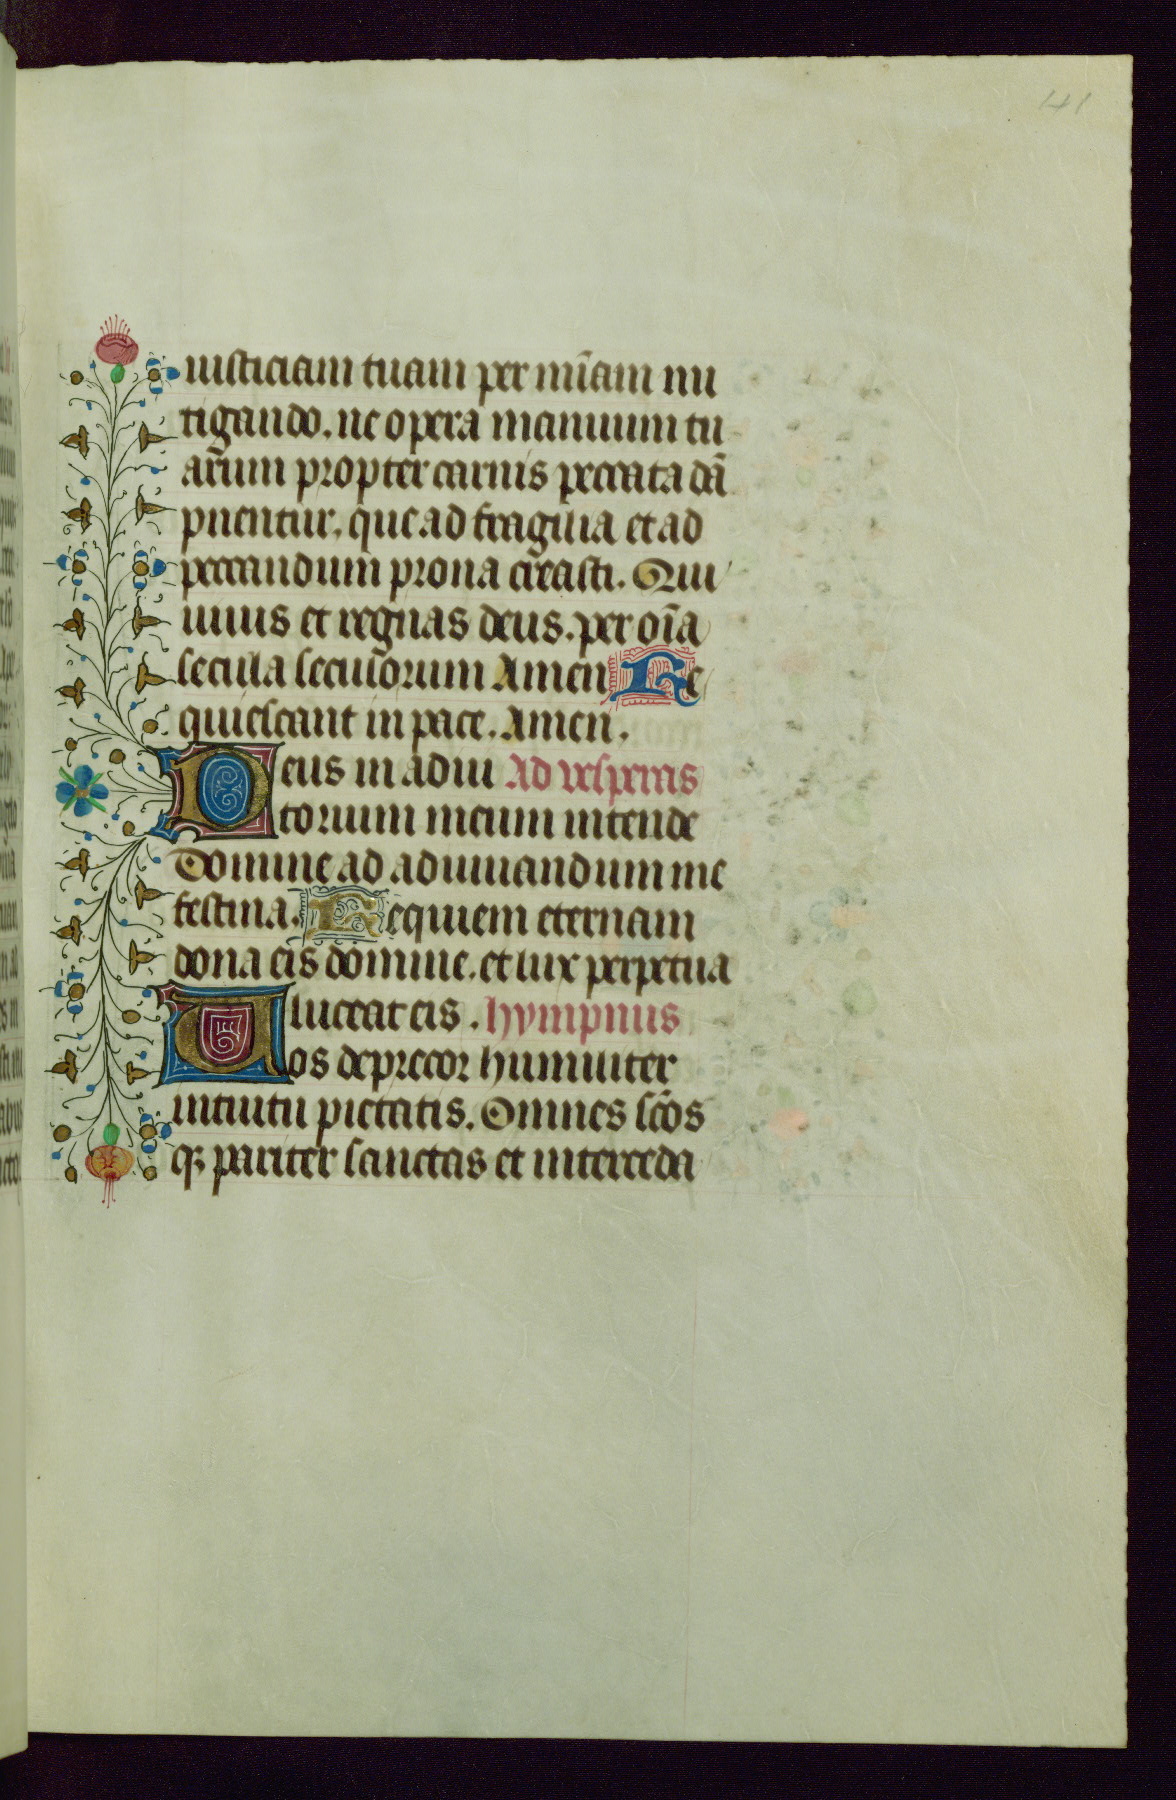 141
iusticiam tuam per mīam mi
tigando. ne opera manuum tu
ar̄um propter carnis peccata dā
pnentur. que ad fragilia et ad
peccandum prona cr̄easti. Qui
uiuis et regnas deus. per oīa
secula seculo̅rum Amen Re
quiescant in pace. Amen.
Deus in adiu Ad vesperas
torium meum intende
Domine ad adiuuandum me
festina. Requiem eternam
dona eis domine. et lux perpetua
luceat eis. hympnus
Uos deprecor humiliter
intuitu pietatis. Omnes sc̄os
qꝫ pariter sanctas et interceda